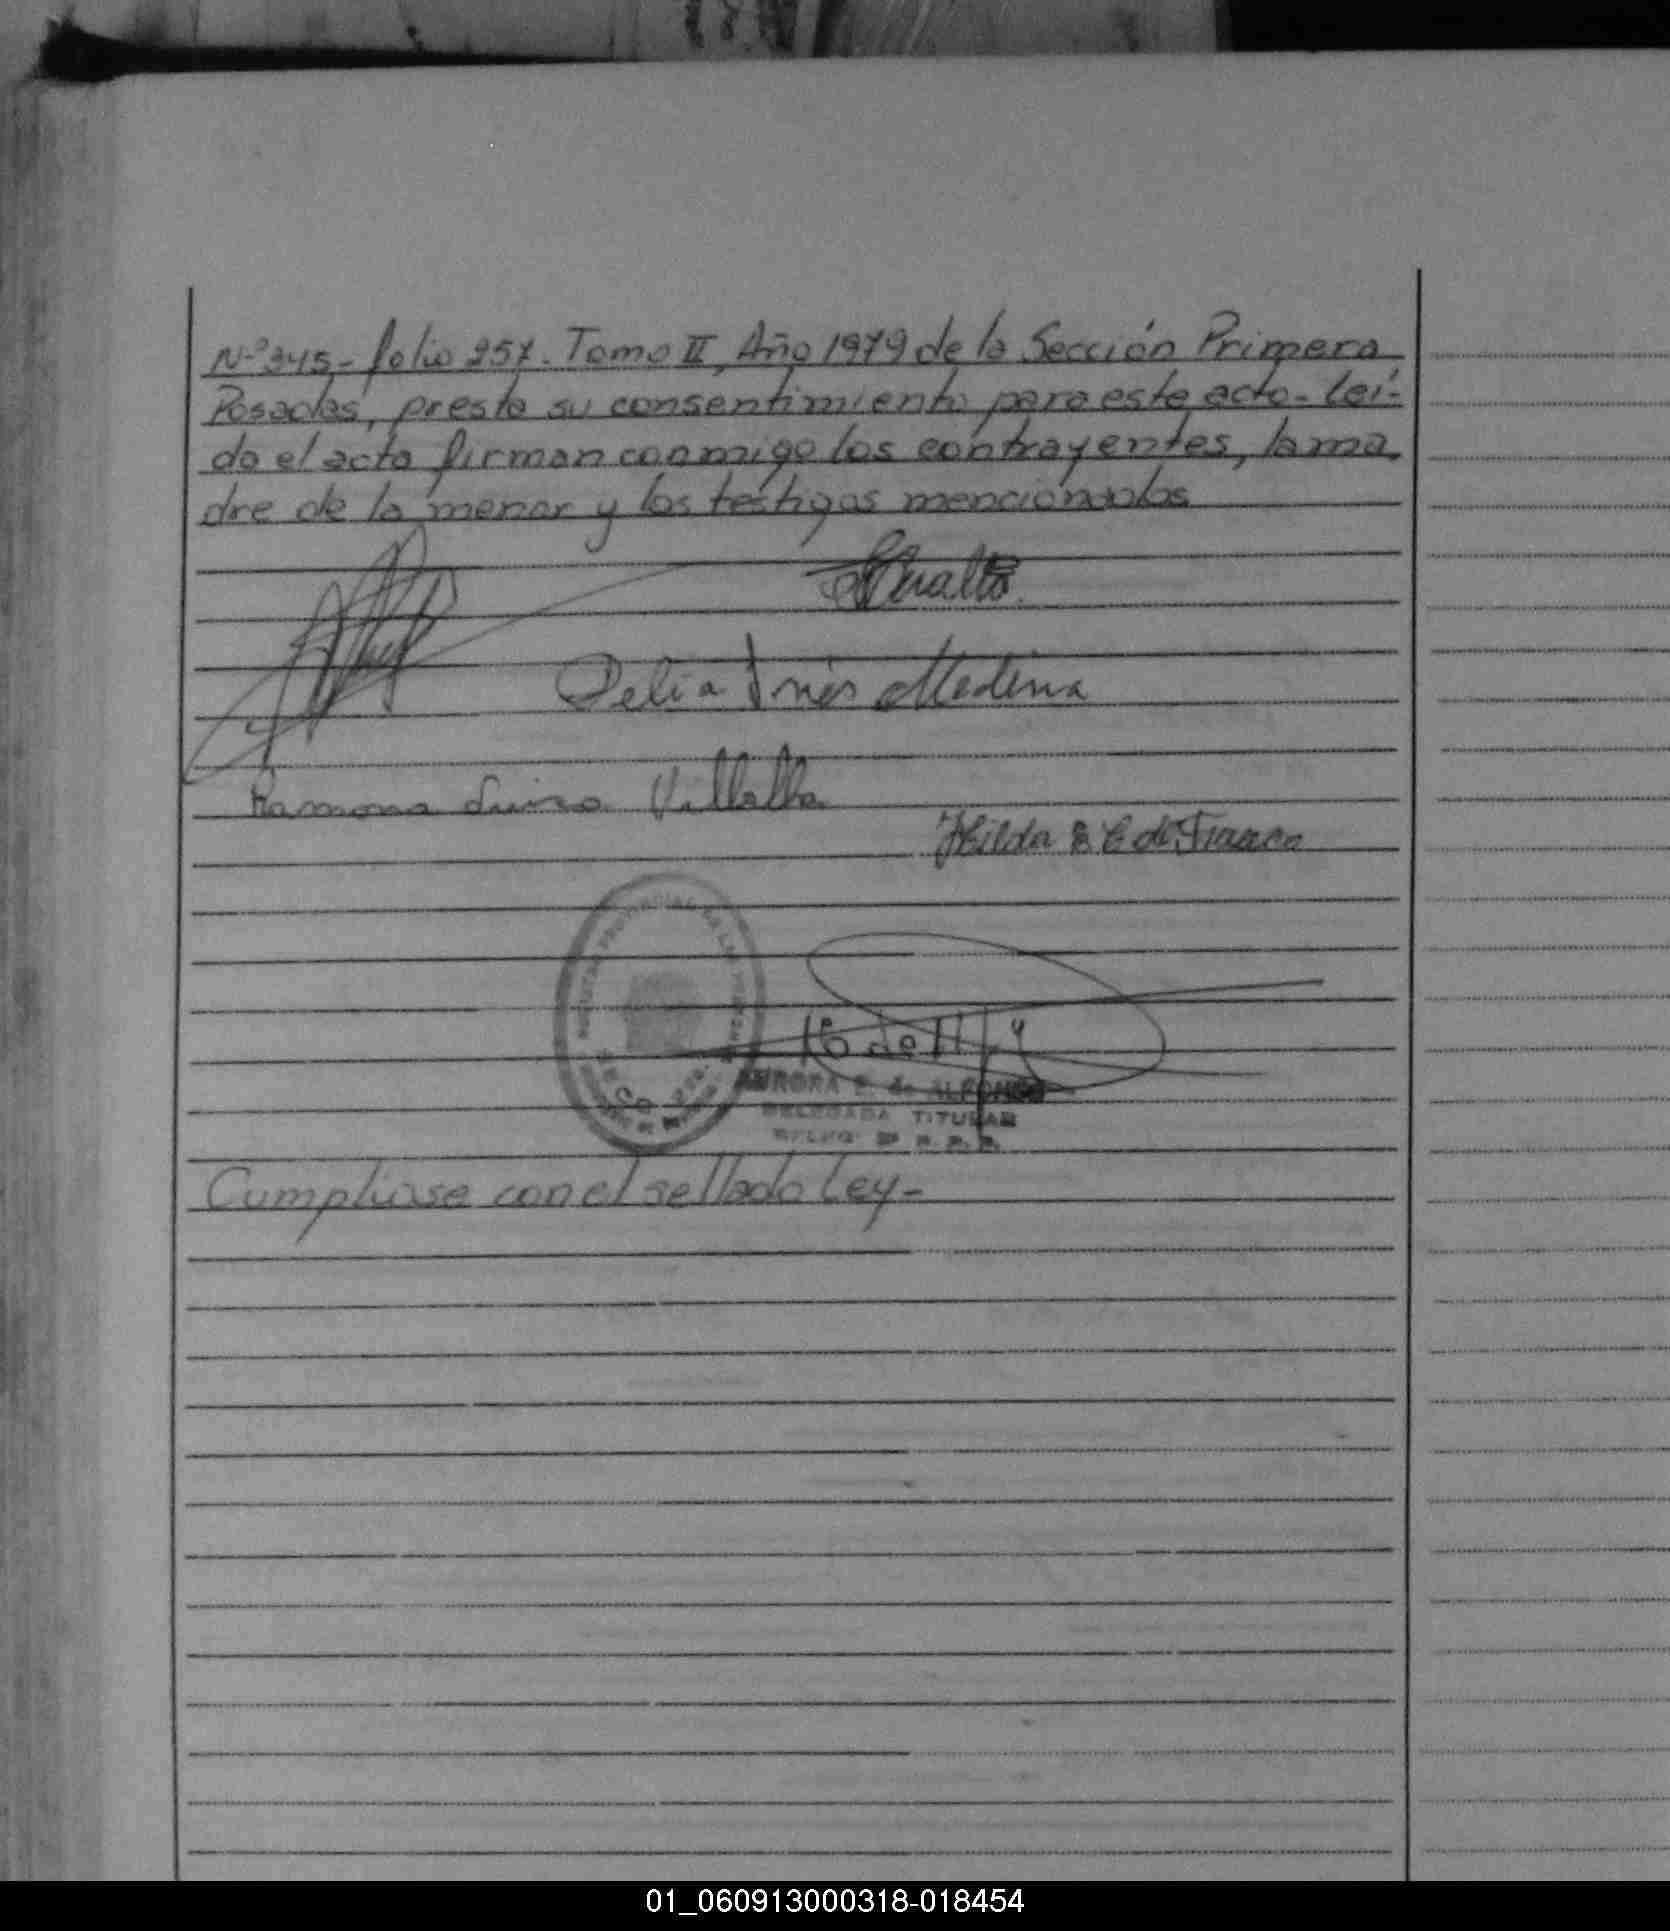 Nº 345- folio 257. Tomo II, Año 1979 de la Sección Primera
Posadas, presta su consentimiento para este acto- Leí-
do el acta firman conmigo los contrayentes, la ma
dre de la menor y los testigos mencionados
Peralta
Delia Inés Medina
Ramona Luisa Villalba
Hilda E C de Franco
AURORA E. de ALFONSO
DELEGADA TITULAR
Cumpliose con el sellado Ley-
01_060913000318-018454